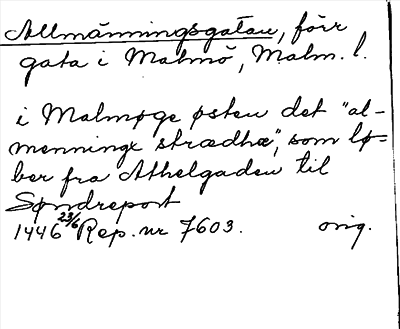 Allmänningsgatan, förr
gata i Malmö, Malm. l.
i Malmøge østen det "al-
menninge strædhæ", som lø-
ber fra Athelgaden til
Søndreport
1446 23/6 Rep. nr 7603. orig.